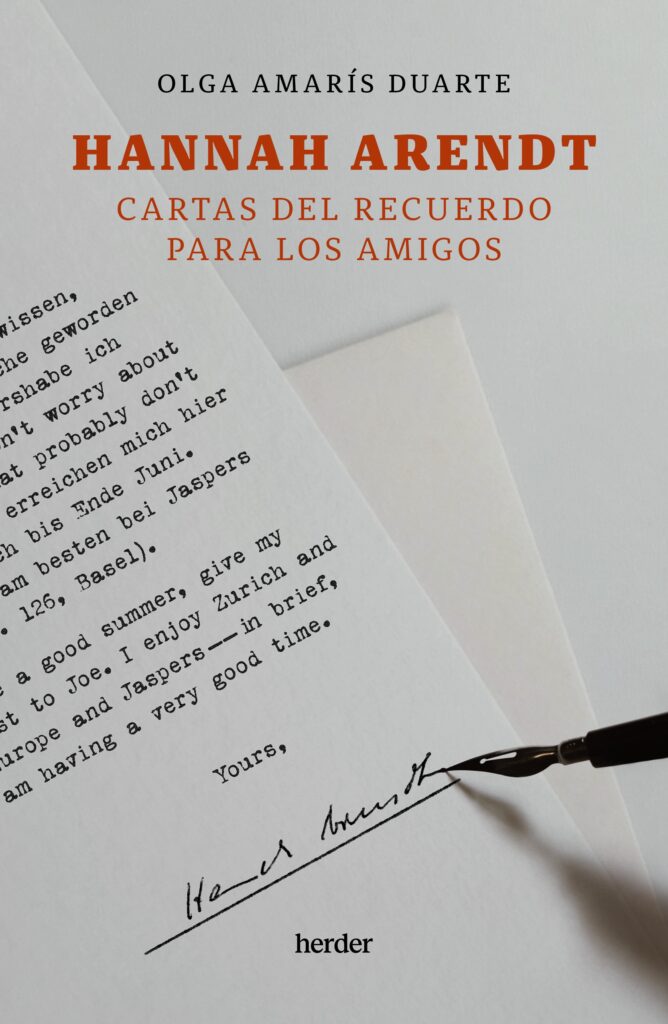 OLGA AMARÍS DUARTE
HANNAH ARENDT
CARTAS DEL RECUERDO
PARA LOS AMIGOS
wissen,
he geworden
rshabe ich
n't worry about
at probably don't
erreichen mich hier
h bis Ende Juni.
am besten bei Jaspers
. 126, Basel).
a good summer, give my
st to Joe. I enjoy Zurich and
urope and Jaspers——in brief,
am having a very good time.
Yours,
Hannah Arendt
herder